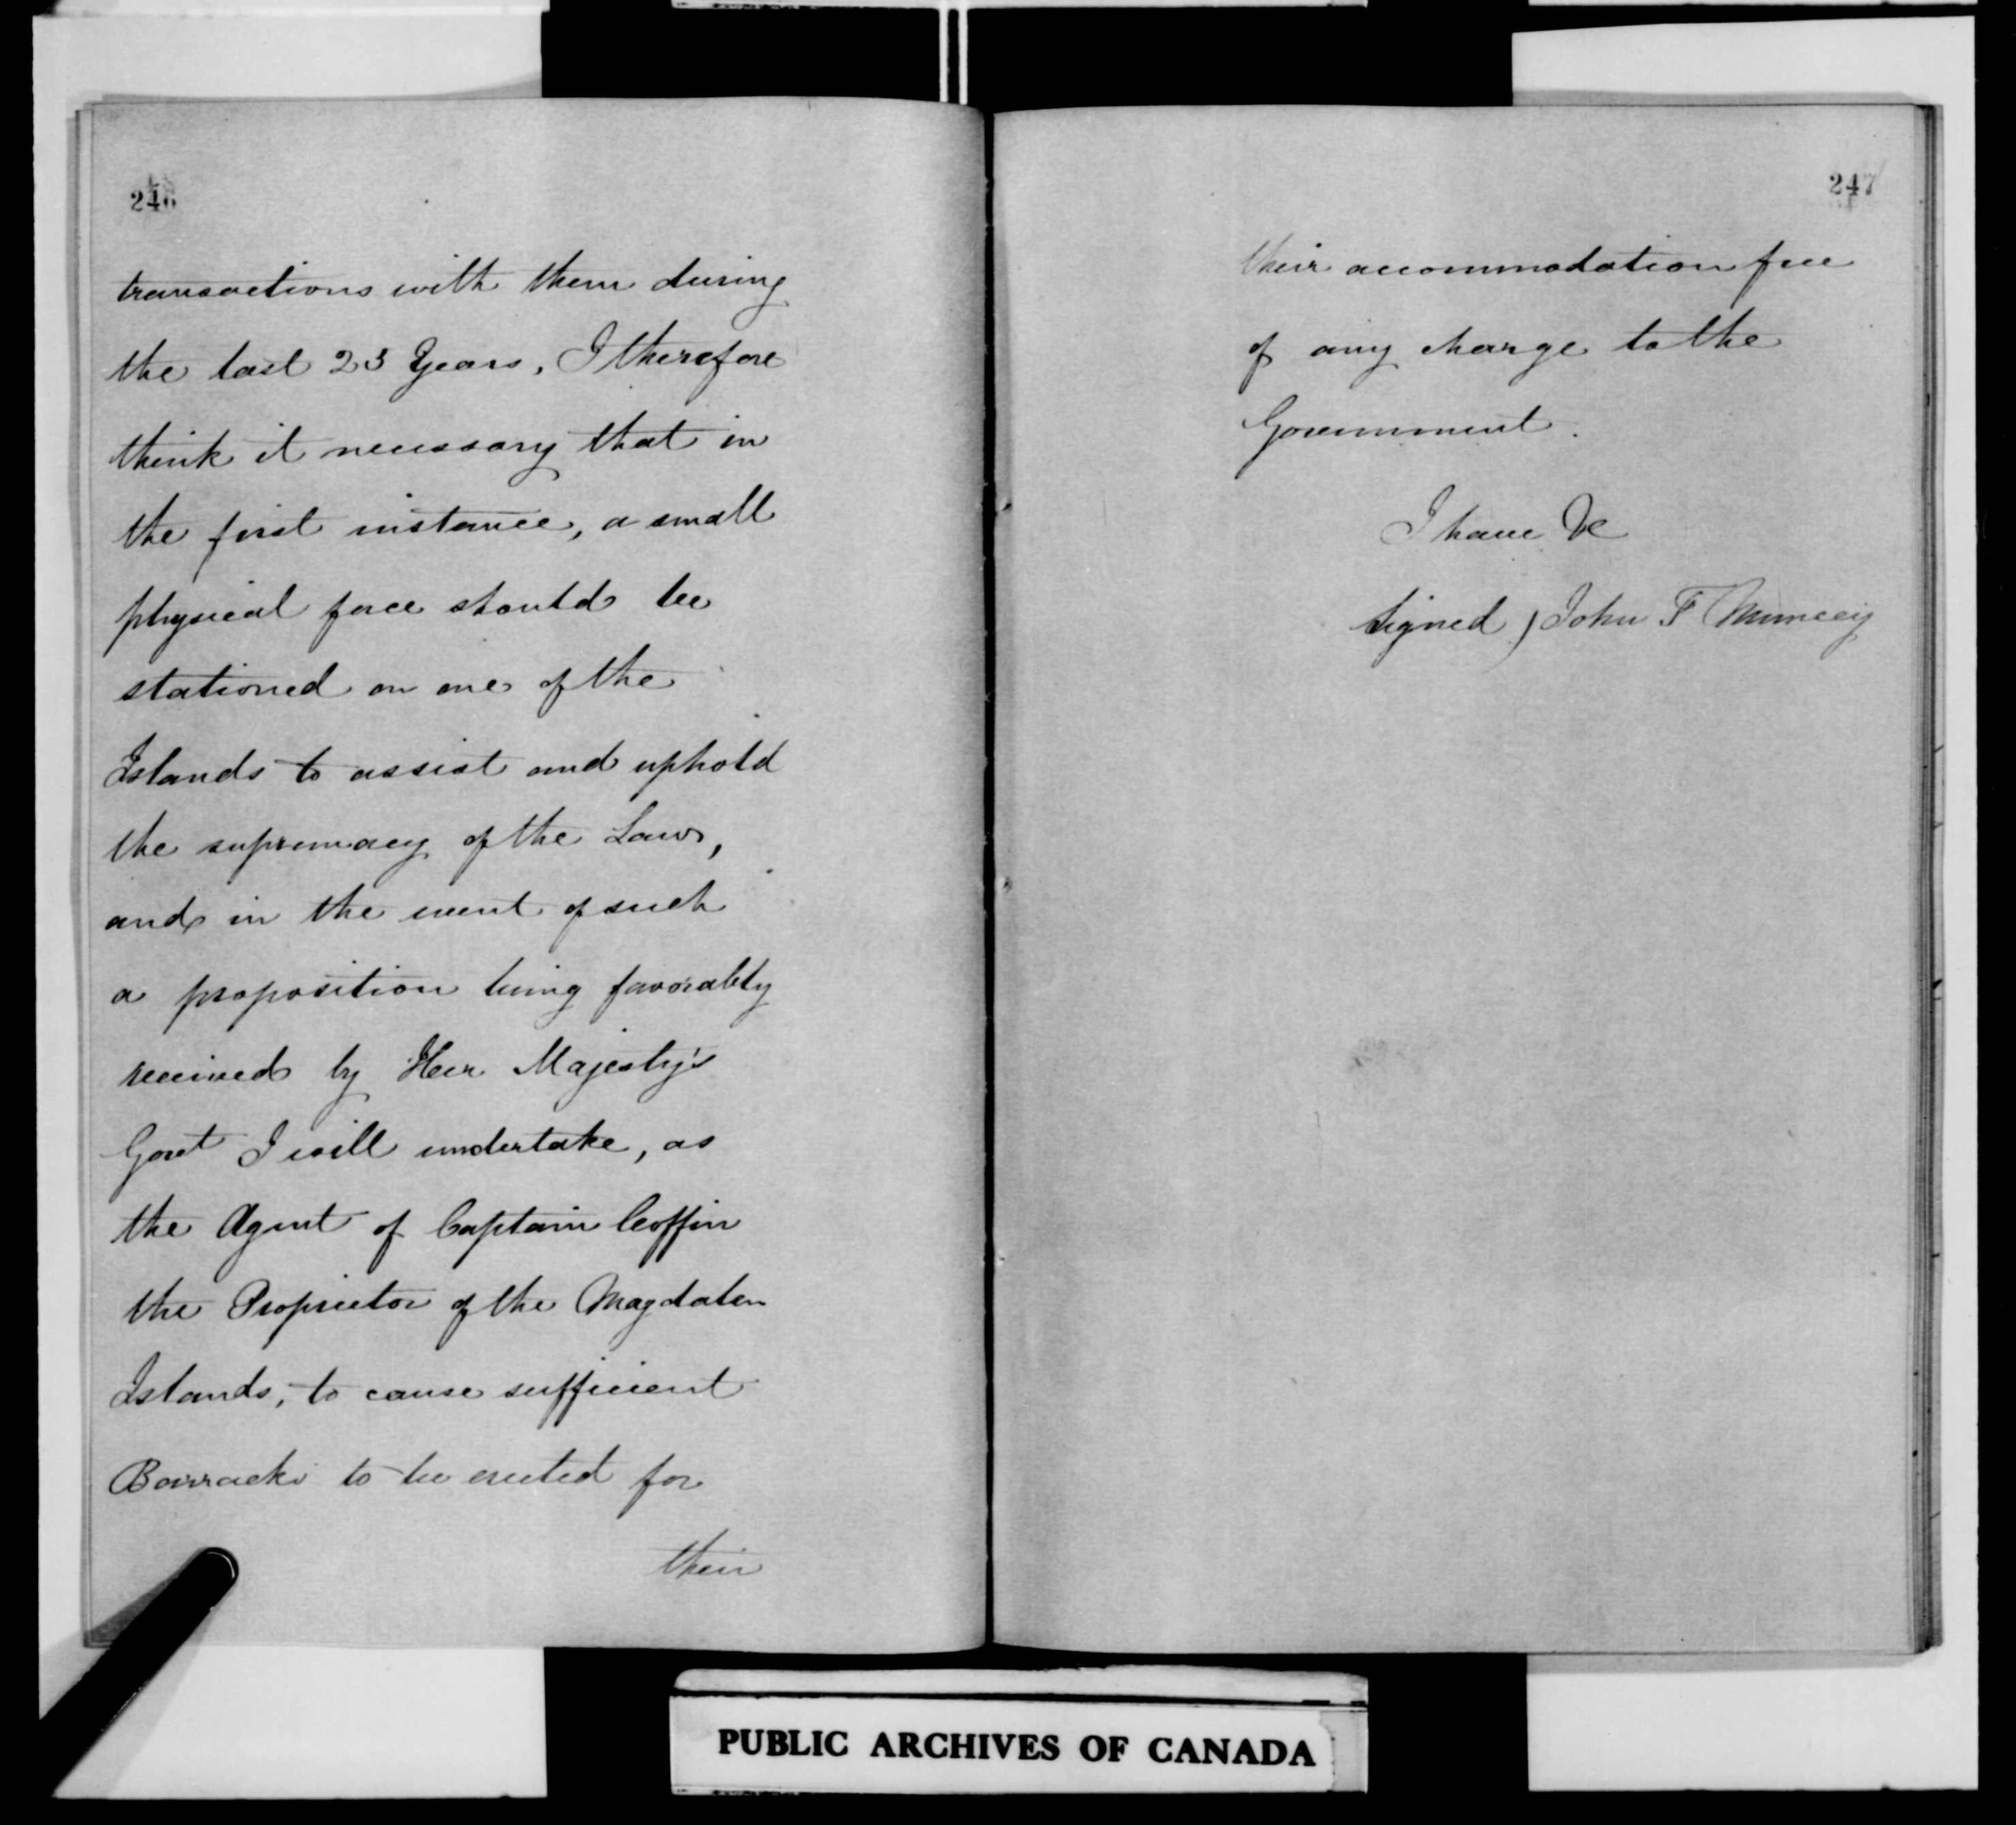 246
transactions with them during
the last 23 Years, I therefore
think it necessary that in
the first instance, a small
physical force should be
stationed on one of the
Islands to assist and uphold
the supremacy of the Laws,
and in the event of such
a proposition being favorably
received by Her Majesty's
Govt I will undertake, as
the Agent of Captain Coffin
the Proprietor of the Magdalen
Islands, to cause sufficient
Barracks to be erected for
their
247
their accommodation free
of any charge to the
Government.
I have &c
Signed) John F
PUBLIC ARCHIVES OF CANADA